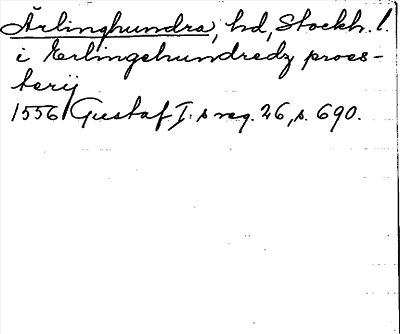 Ärlinghundra, hd, Stockh. l.
i Erlingehundredz proes-
terij
1556 Gustaf I. s reg. 26, s. 690.